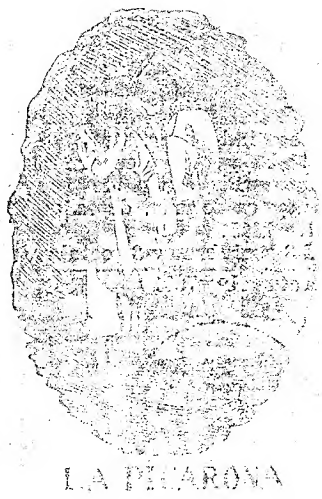 LA PICARONA